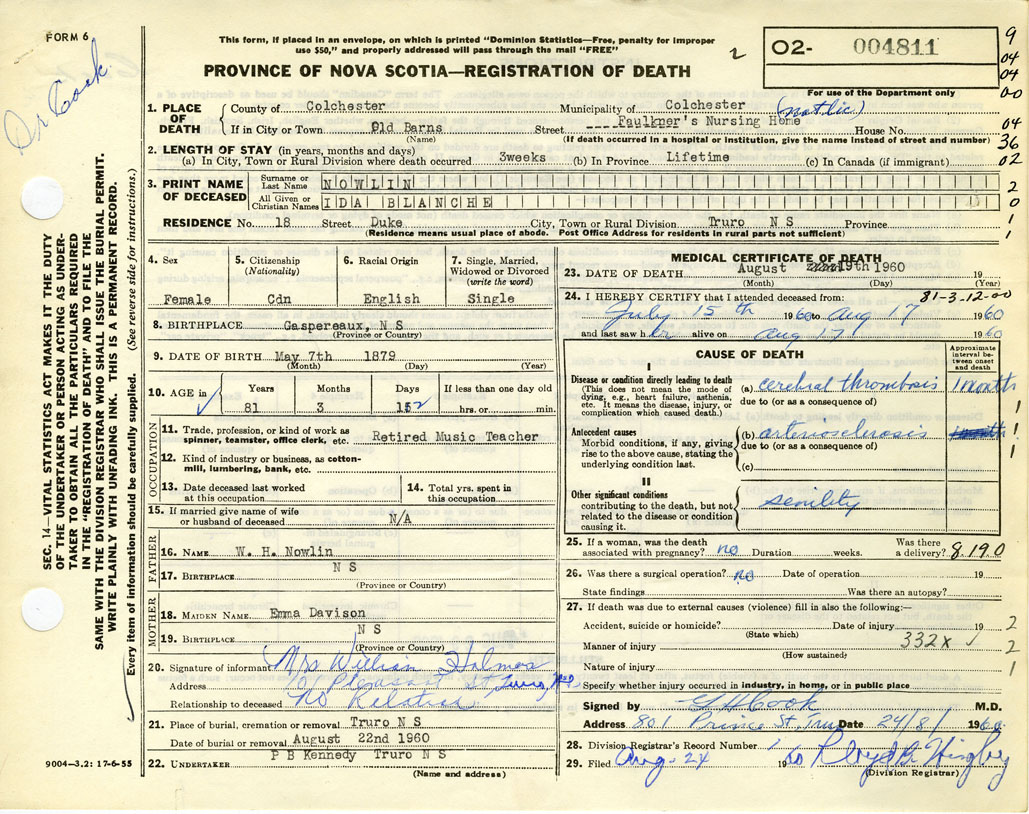 FORM 6
Dr Cook
This form, if placed in an envelope, on which is printed "Dominion Statistics—Free, penalty for improper
use $50," and properly addressed will pass through the mail "FREE"
2
PROVINCE OF NOVA SCOTIA—REGISTRATION OF DEATH
O2- 004811
For use of the Department only
9
04
04
00
04
36
02
2
0
1
SEC. 14—VITAL STATISTICS ACT MAKES IT THE DUTY
OF THE UNDERTAKER OR PERSON ACTING AS UNDER-
TAKER TO OBTAIN ALL THE PARTICULARS REQUIRED
IN THE "REGISTRATION OF DEATH" AND TO FILE THE
SAME WITH THE DIVISION REGISTRAR WHO SHALL ISSUE THE BURIAL PERMIT.
WRITE PLAINLY WITH UNFADING INK. THIS IS A PERMANENT RECORD.
Every item of information should be carefully supplied. (See reverse side for instructions.)
1. PLACE OF DEATH
County of Colchester Municipality of Colchester (not lic)
If in City or Town Old Barns Street Faulkner's Nursing Home House No.
(Name) (If death occurred in a hospital or institution, give the name instead of street and number)
2. LENGTH OF STAY (in years, months and days)
(a) In City, Town or Rural Division where death occurred 3weeks (b) In Province Lifetime (c) In Canada (if immigrant)
3. PRINT NAME OF DECEASED
Surname or Last Name NOWLIN
All Given or Christian Names IDA BLANCHE
RESIDENCE No. 18 Street Duke City, Town or Rural Division Truro N S Province
(Residence means usual place of abode. Post Office Address for residents in rural parts not sufficient)
4. Sex 5. Citizenship (Nationality) 6. Racial Origin 7. Single, Married, Widowed or Divorced (write the word)
Female Cdn English Single
8. BIRTHPLACE Gaspereaux, N S
(Province or Country)
9. DATE OF BIRTH May 7th 1879
(Month) (Day) (Year)
10. AGE in Years Months Days If less than one day old
81 3 12 hrs. or min.
OCCUPATION
11. Trade, profession, or kind of work as spinner, teamster, office clerk, etc. Retired Music Teacher
12. Kind of industry or business, as cotton-mill, lumbering, bank, etc.
13. Date deceased last worked at this occupation 14. Total yrs. spent in this occupation
15. If married give name of wife or husband of deceased N/A
FATHER
16. NAME W. H. Nowlin
17. BIRTHPLACE N S
(Province or Country)
MOTHER
18. MAIDEN NAME Emma Davison
19. BIRTHPLACE N S
(Province or Country)
20. Signature of informant Mrs William Holmes
Address Pleasant St Truro N.S.
Relationship to deceased No Relation
21. Place of burial, cremation or removal Truro N S
Date of burial or removal August 22nd 1960
22. UNDERTAKER P B Kennedy Truro N S
(Name and address)
9004—3.2: 17-6-55
MEDICAL CERTIFICATE OF DEATH
23. DATE OF DEATH August 19th 1960 19
(Month) (Day) (Year)
81-3-12-00
24. I HEREBY CERTIFY that I attended deceased from:
July 15th 1960 to Aug 17 1960
and last saw her alive on Aug 17 1960
CAUSE OF DEATH
Approximate interval between onset and death
I
Disease or condition directly leading to death
(This does not mean the mode of dying, e.g., heart failure, asthenia, etc. It means the disease, injury, or complication which caused death.)
(a) cerebral thrombosis 1 month
due to (or as a consequence of)
Antecedent causes
Morbid conditions, if any, giving rise to the above cause, stating the underlying condition last.
(b) arteriosclerosis
due to (or as a consequence of)
(c)
II
Other significant conditions
contributing to the death, but not related to the disease or condition causing it.
senility
1
1
1
25. If a woman, was the death associated with pregnancy? no Duration weeks. Was there a delivery? 8.190
26. Was there a surgical operation? no Date of operation 19
State findings Was there an autopsy?
27. If death was due to external causes (violence) fill in also the following:—
Accident, suicide or homicide? Date of injury 19 2
(State which)
332X
Manner of injury 2
(How sustained)
Nature of injury 1
Specify whether injury occurred in industry, in home, or in public place
Signed by G H Cook M.D.
Address 801 Prince St, Truro Date 24/8/ 1960
28. Division Registrar's Record Number
29. Filed Aug. 24 1960
(Division Registrar)